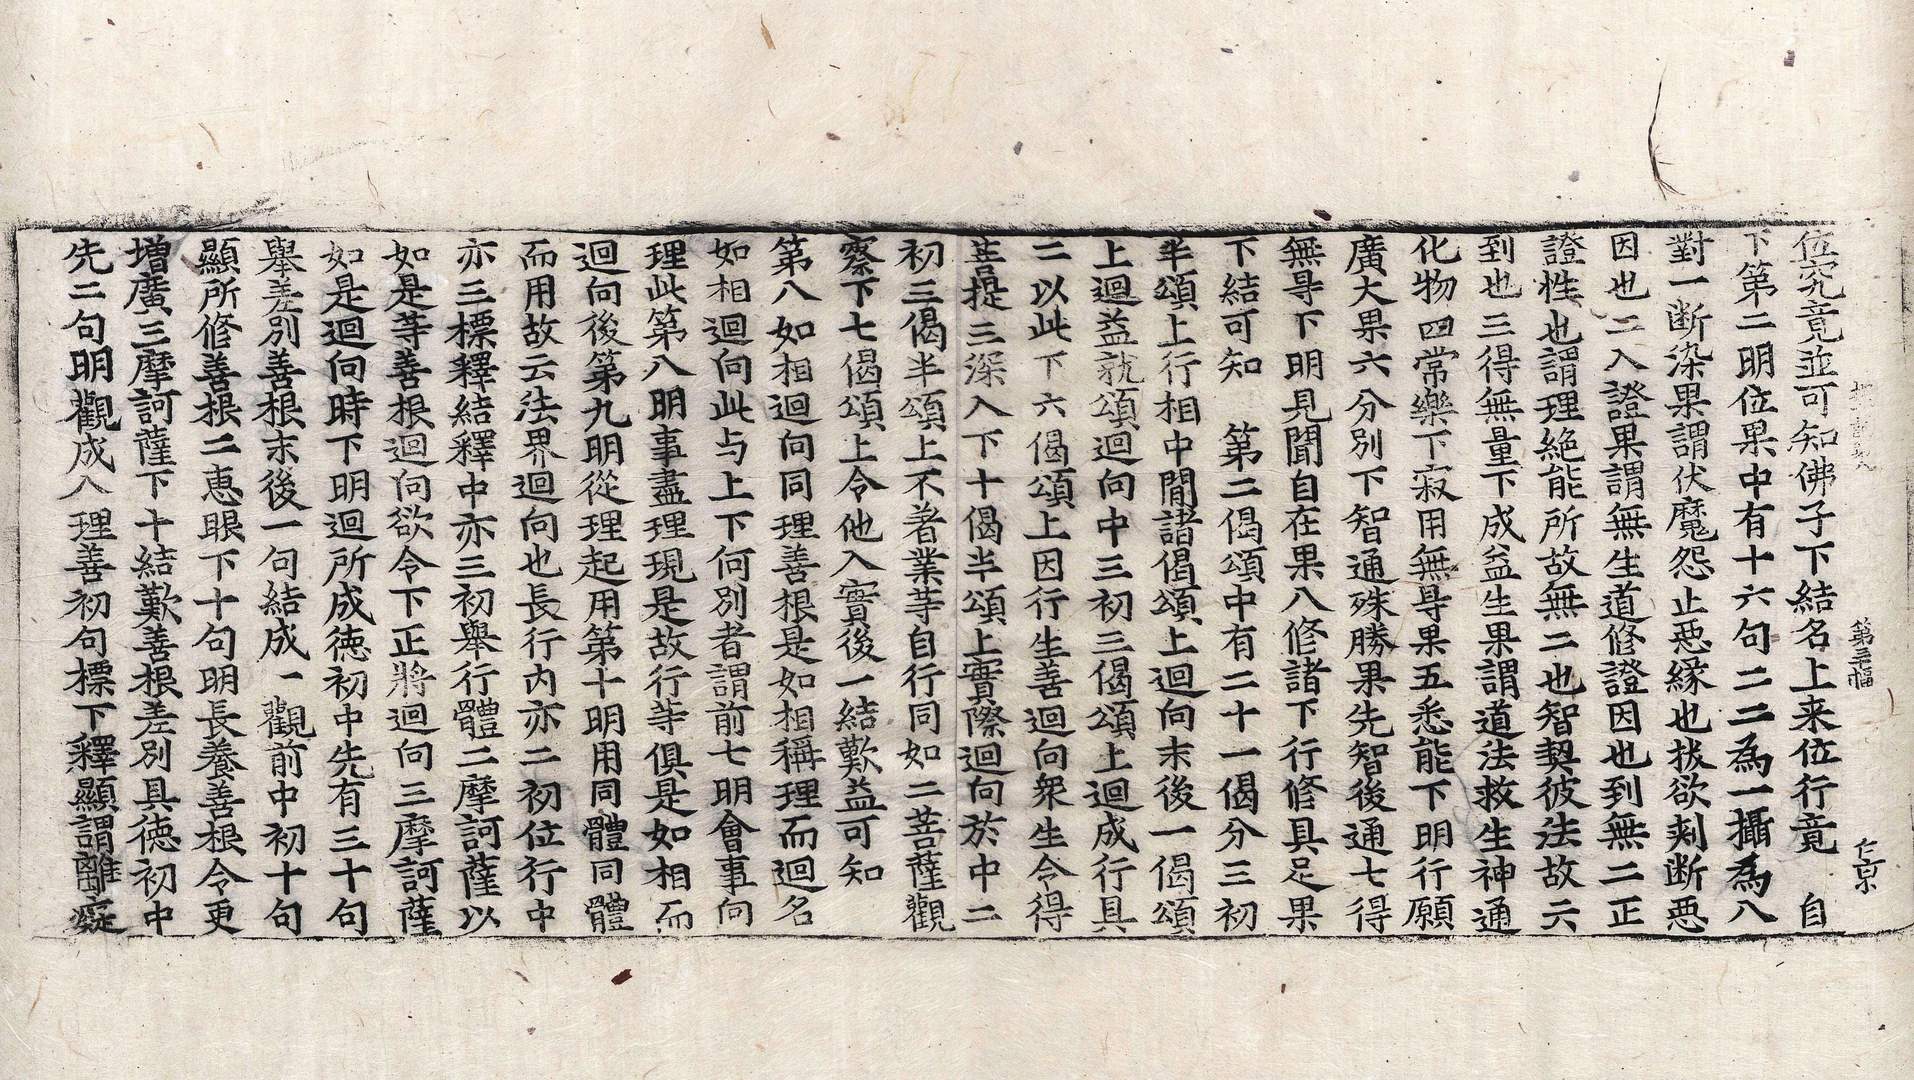 第三幅
仁杲
位究竟並可知佛子下結名上来位行竟　自
下第二明位果中有十六句二二為一攝為八
對一断染果謂伏魔怨止惡縁也拔欲刾断惡
因也二入證果謂無生道修證因也到無二正
證性也謂理絶能所故無二也智契彼法故云
到也三得無量下成益生果謂道法救生神通
化物四常樂下寂用無㝵果五悉能下明行願
廣大果六分別下智通殊勝果先智後通七得
無㝵下明見聞自在果八修諸下行修具足果
下結可知　第二偈頌中有二十一偈分三初
半頌上行相中間諸偈頌上迴向末後一偈頌
上迴益就頌迴向中三初三偈頌上迴成行具
二以此下六偈頌上因行生善迴向衆生令得
菩提三深入下十偈半頌上實際迴向於中二
初三偈半頌上不著業等自行同如二菩薩觀
察下七偈頌上令他入實後一結歎益可知
第八如相迴向同理善根是如相稱理而迴名
如相迴向此与上下何別者謂前七明會事向
理此第八明事盡理現是故行等俱是如相而
迴向後第九明從理起用第十明用同體同體
而用故云法界迴向也長行内亦二初位行中
亦三標釋結釋中亦三初舉行體二摩訶薩以
如是等善根迴向欲令下正將迴向三摩訶薩
如是迴向時下明迴所成德初中先有三十句
舉差別善根末後一句結成一觀前中初十句
顯所修善根二恵眼下十句明長養善根令更
増廣三摩訶薩下十結歎善根差別具德初中
先二句明觀成入理善初句標下釋顯謂離癡